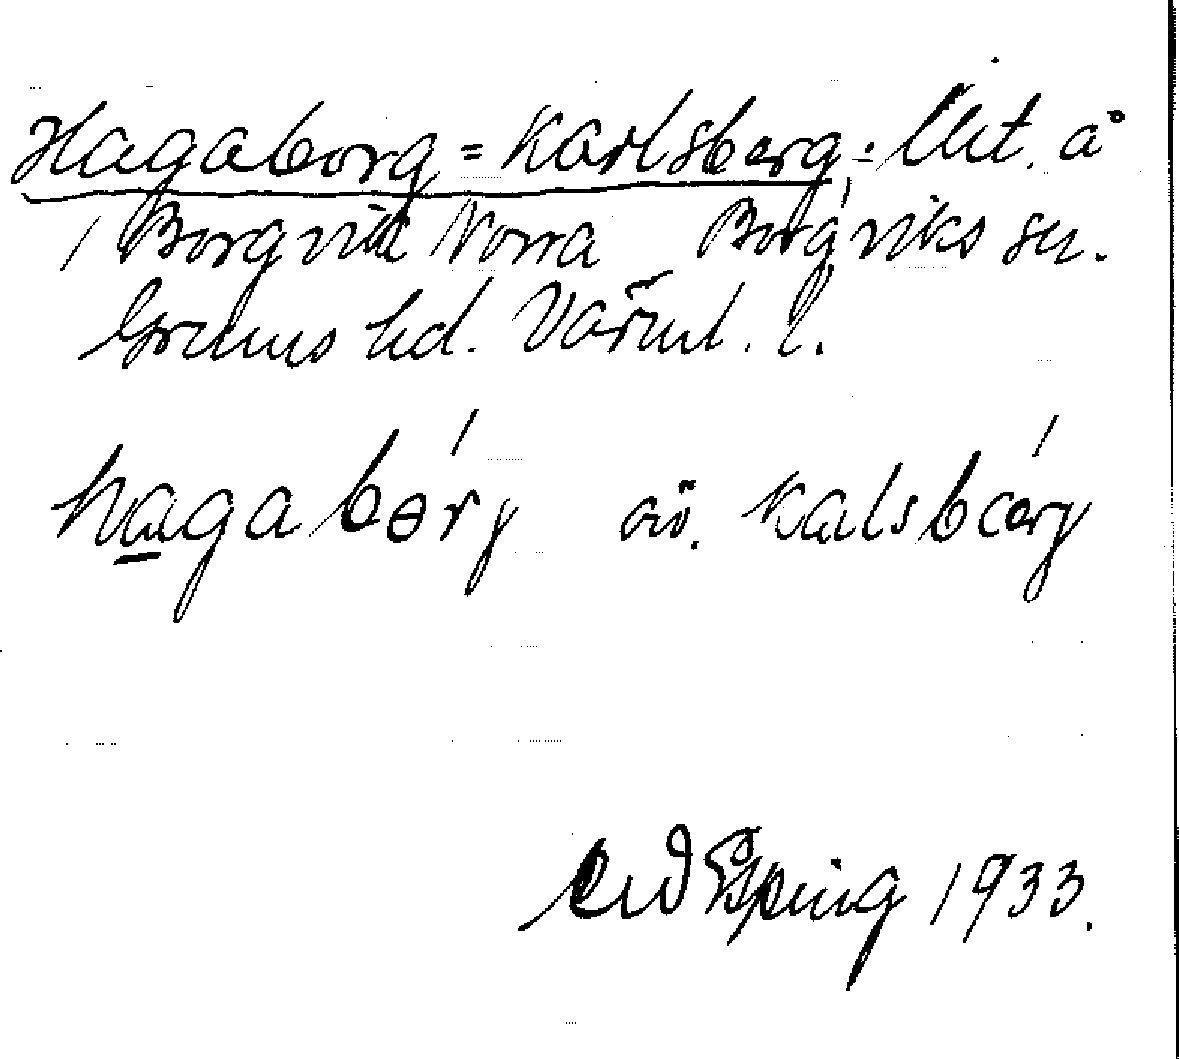 Hagaborg = Karlsberg: Utt. å
i Borgvik Norra Borgviks sn.
Grums hd. Värml. l.
hagabɵ́rj äv. kalsbærj
Esping 1933.